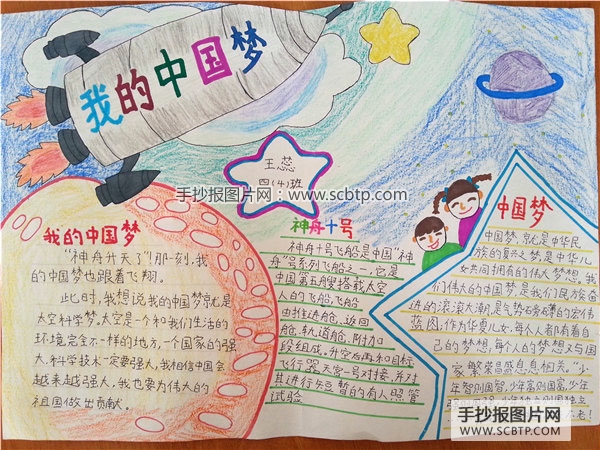 我的中国梦
王蕊
四(4)班
手抄报图片网：www.scbtp.com
我的中国梦
“神舟升天了”!那一刻,我
的中国梦也跟着飞翔。
此时,我想说我的中国梦就是
太空科学梦。太空是一个和我们生活的
环境完全不一样的地方,一个国家的强
大,科学技术一定要强大,我相信中国会
越来越强大,我也要为伟大的
祖国做出贡献。
神舟十号
神舟十号飞船是中国“神
舟”号系列飞船之一,它是
中国第五艘搭载太空
人的飞船,飞船
由推进舱、返回
舱、轨道舱、附加
段组成。升空后再和目标
飞行器天宫一号对接,并对
其进行短暂的有人照管
试验
中国梦
中国梦,就是中华民
族的复兴之梦,是中华儿
女共同拥有的伟大梦想。我
们伟大的中国梦是我们民族奋
进的滚滚大潮,是气势磅礴的宏伟
蓝图,作为华夏儿女,每个人都有着自
己的梦想,每个人的梦想又与国
家繁荣昌盛息息相关。“少
年智则国智,少年富则国富,少年
手抄报图片网
SCBTP.COM